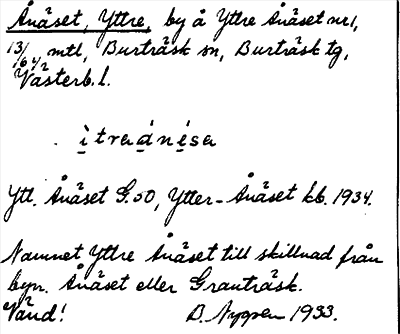 Ånäset, Yttre, by å Yttre Ånäset nr 1,
13/64² mtl, Burträsk sn, Burträsk tg,
Västerb. l.
ìtraånésa
Ytt. Ånäset G.50, Ytter-Ånäset kb. 1934.
Namnet Yttre Ånäset till skillnad från
byn. Ånäset eller Granträsk.
Vänd! B. Nygren 1933.